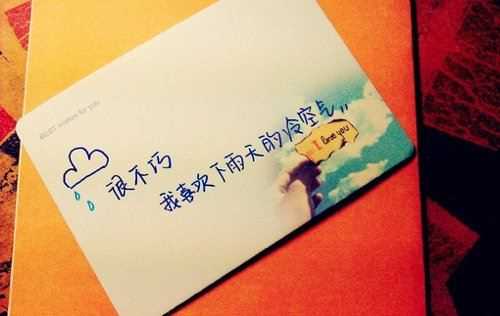 BEST wishes for you
很不巧
我喜欢下雨天的冷空气,,
I love you